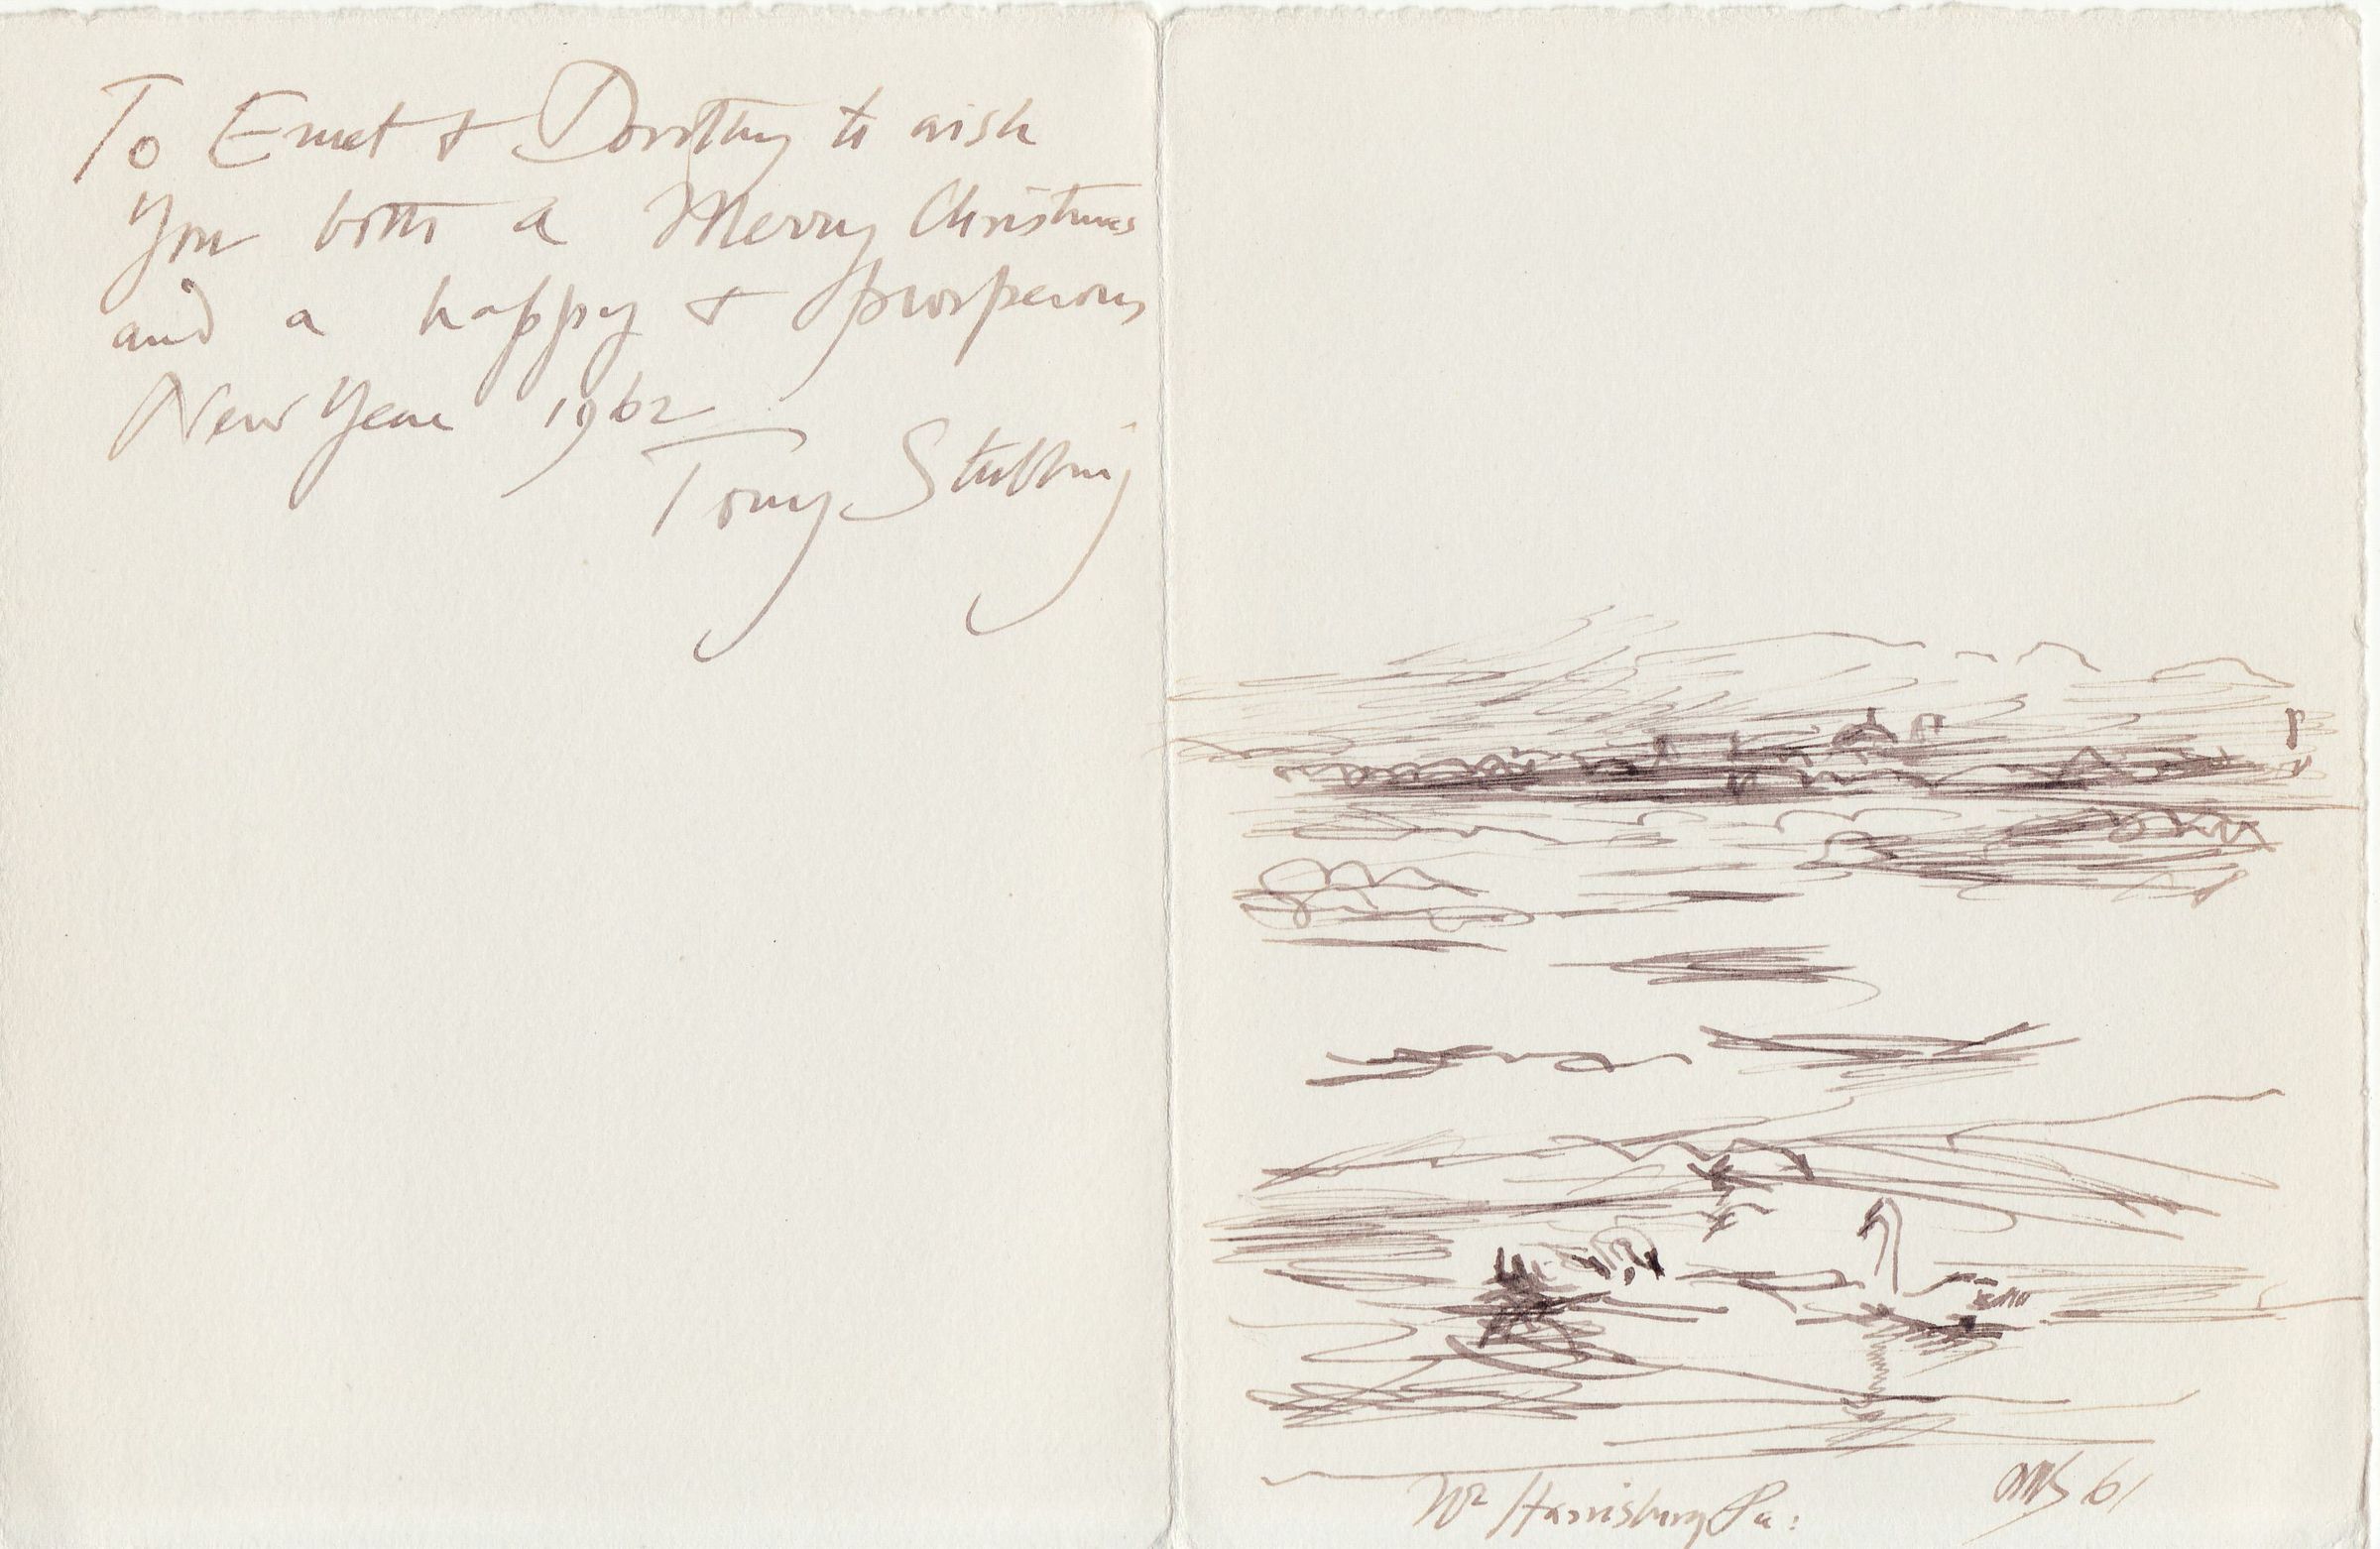 To Emet & Dorothy to wish
you both a Merry Christmas
and a happy & prosperous
New Year 1962
Tony Stubbing
Nr Harrisburg Pa:
61